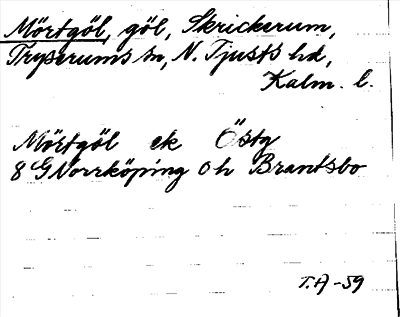 Mörtgöl, göl, Skrickerum,
Tryserums sn, N. Tjusts hd,
Kalm. l.
Mörtgöl ek Östg
8 G Norrköping 0 h Brantsbo
T.A -59